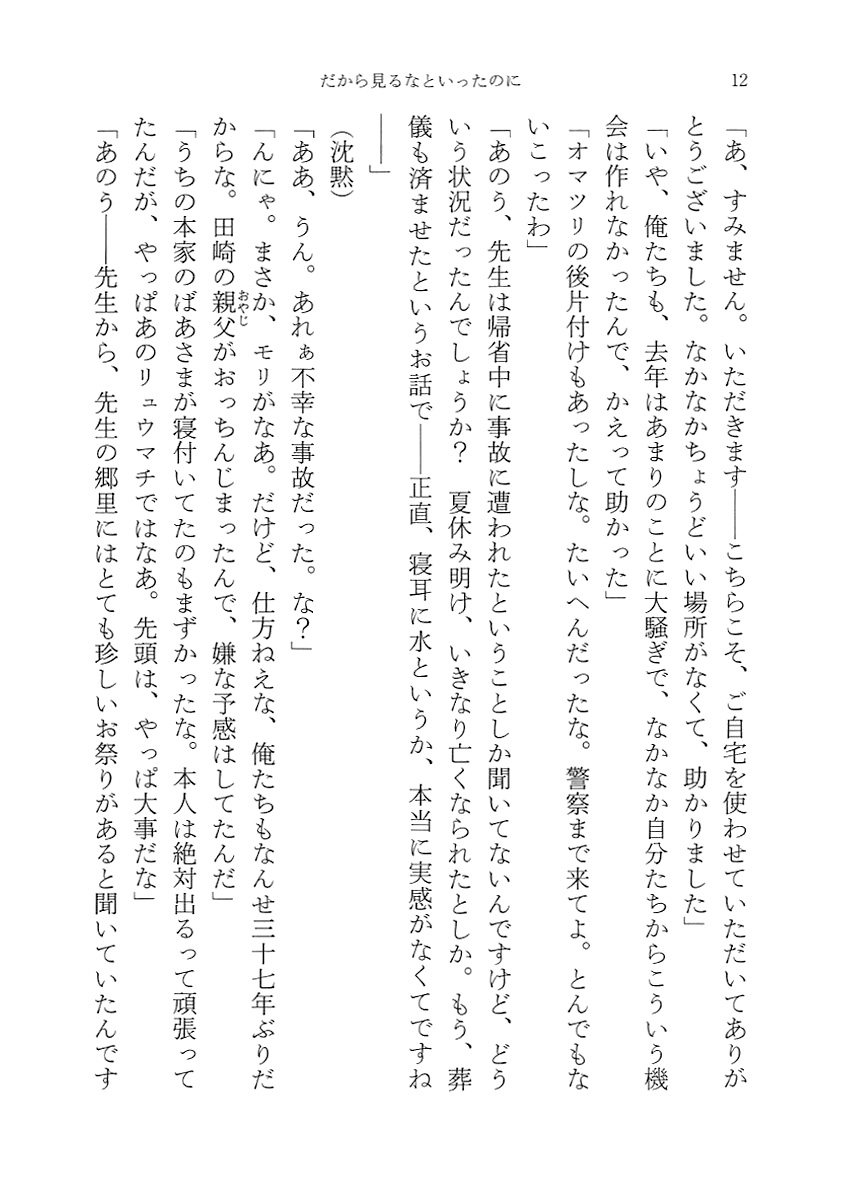 12
だから見るなといったのに
「あ、すみません。いただきます――こちらこそ、ご自宅を使わせていただいてありが
とうございました。なかなかちょうどいい場所がなくて、助かりました」
「いや、俺たちも、去年はあまりのことに大騒ぎで、なかなか自分たちからこういう機
会は作れなかったんで、かえって助かった」
「オマツリの後片付けもあったしな。たいへんだったな。警察まで来てよ。とんでもな
いこったわ」
「あのう、先生は帰省中に事故に遭われたということしか聞いてないんですけど、どう
いう状況だったんでしょうか？　夏休み明け、いきなり亡くなられたとしか。もう、葬
儀も済ませたというお話で――正直、寝耳に水というか、本当に実感がなくてですね
――」
（沈黙）
「ああ、うん。あれぁ不幸な事故だった。な？」
「んにゃ。まさか、モリがなあ。だけど、仕方ねえな、俺たちもなんせ三十七年ぶりだ
からな。田崎の親父おやじがおっちんじまったんで、嫌な予感はしてたんだ」
「うちの本家のばあさまが寝付いてたのもまずかったな。本人は絶対出るって頑張って
たんだが、やっぱあのリュウマチではなあ。先頭は、やっぱ大事だな」
「あのう――先生から、先生の郷里にはとても珍しいお祭りがあると聞いていたんです